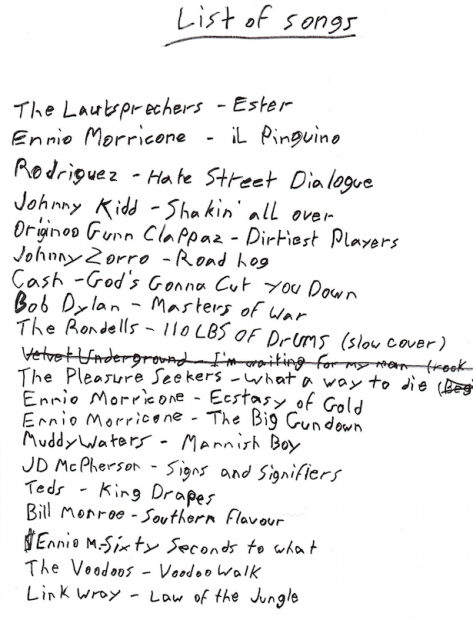 List of songs
The Lautsprechers - Ester
Ennio Morricone - iL Pinguino
Rodriguez - Hate Street Dialogue
Johnny Kidd - Shakin' all over
Originoo Gunn Clappaz - Dirtiest Players
Johnny Zorro - Road hog
Cash - God's Gonna Cut You Down
Bob Dylan - Masters of War
The Rondells - 110 LBS OF Drums (slow cover)
Velvet Underground - I'm waiting for my man (rock
The Pleasure Seekers - what a way to die (Beg
Ennio Morricone - Ecstasy of Gold
Ennio Morricone - The Big Gundown
Muddy Waters - Mannish Boy
JD McPherson - Signs and Signifiers
Teds - King Drapes
Bill Monroe - Southern Flavour
Ennio M. - Sixty Seconds to what
The Voodoos - Voodoo Walk
Link Wray - Law of the Jungle